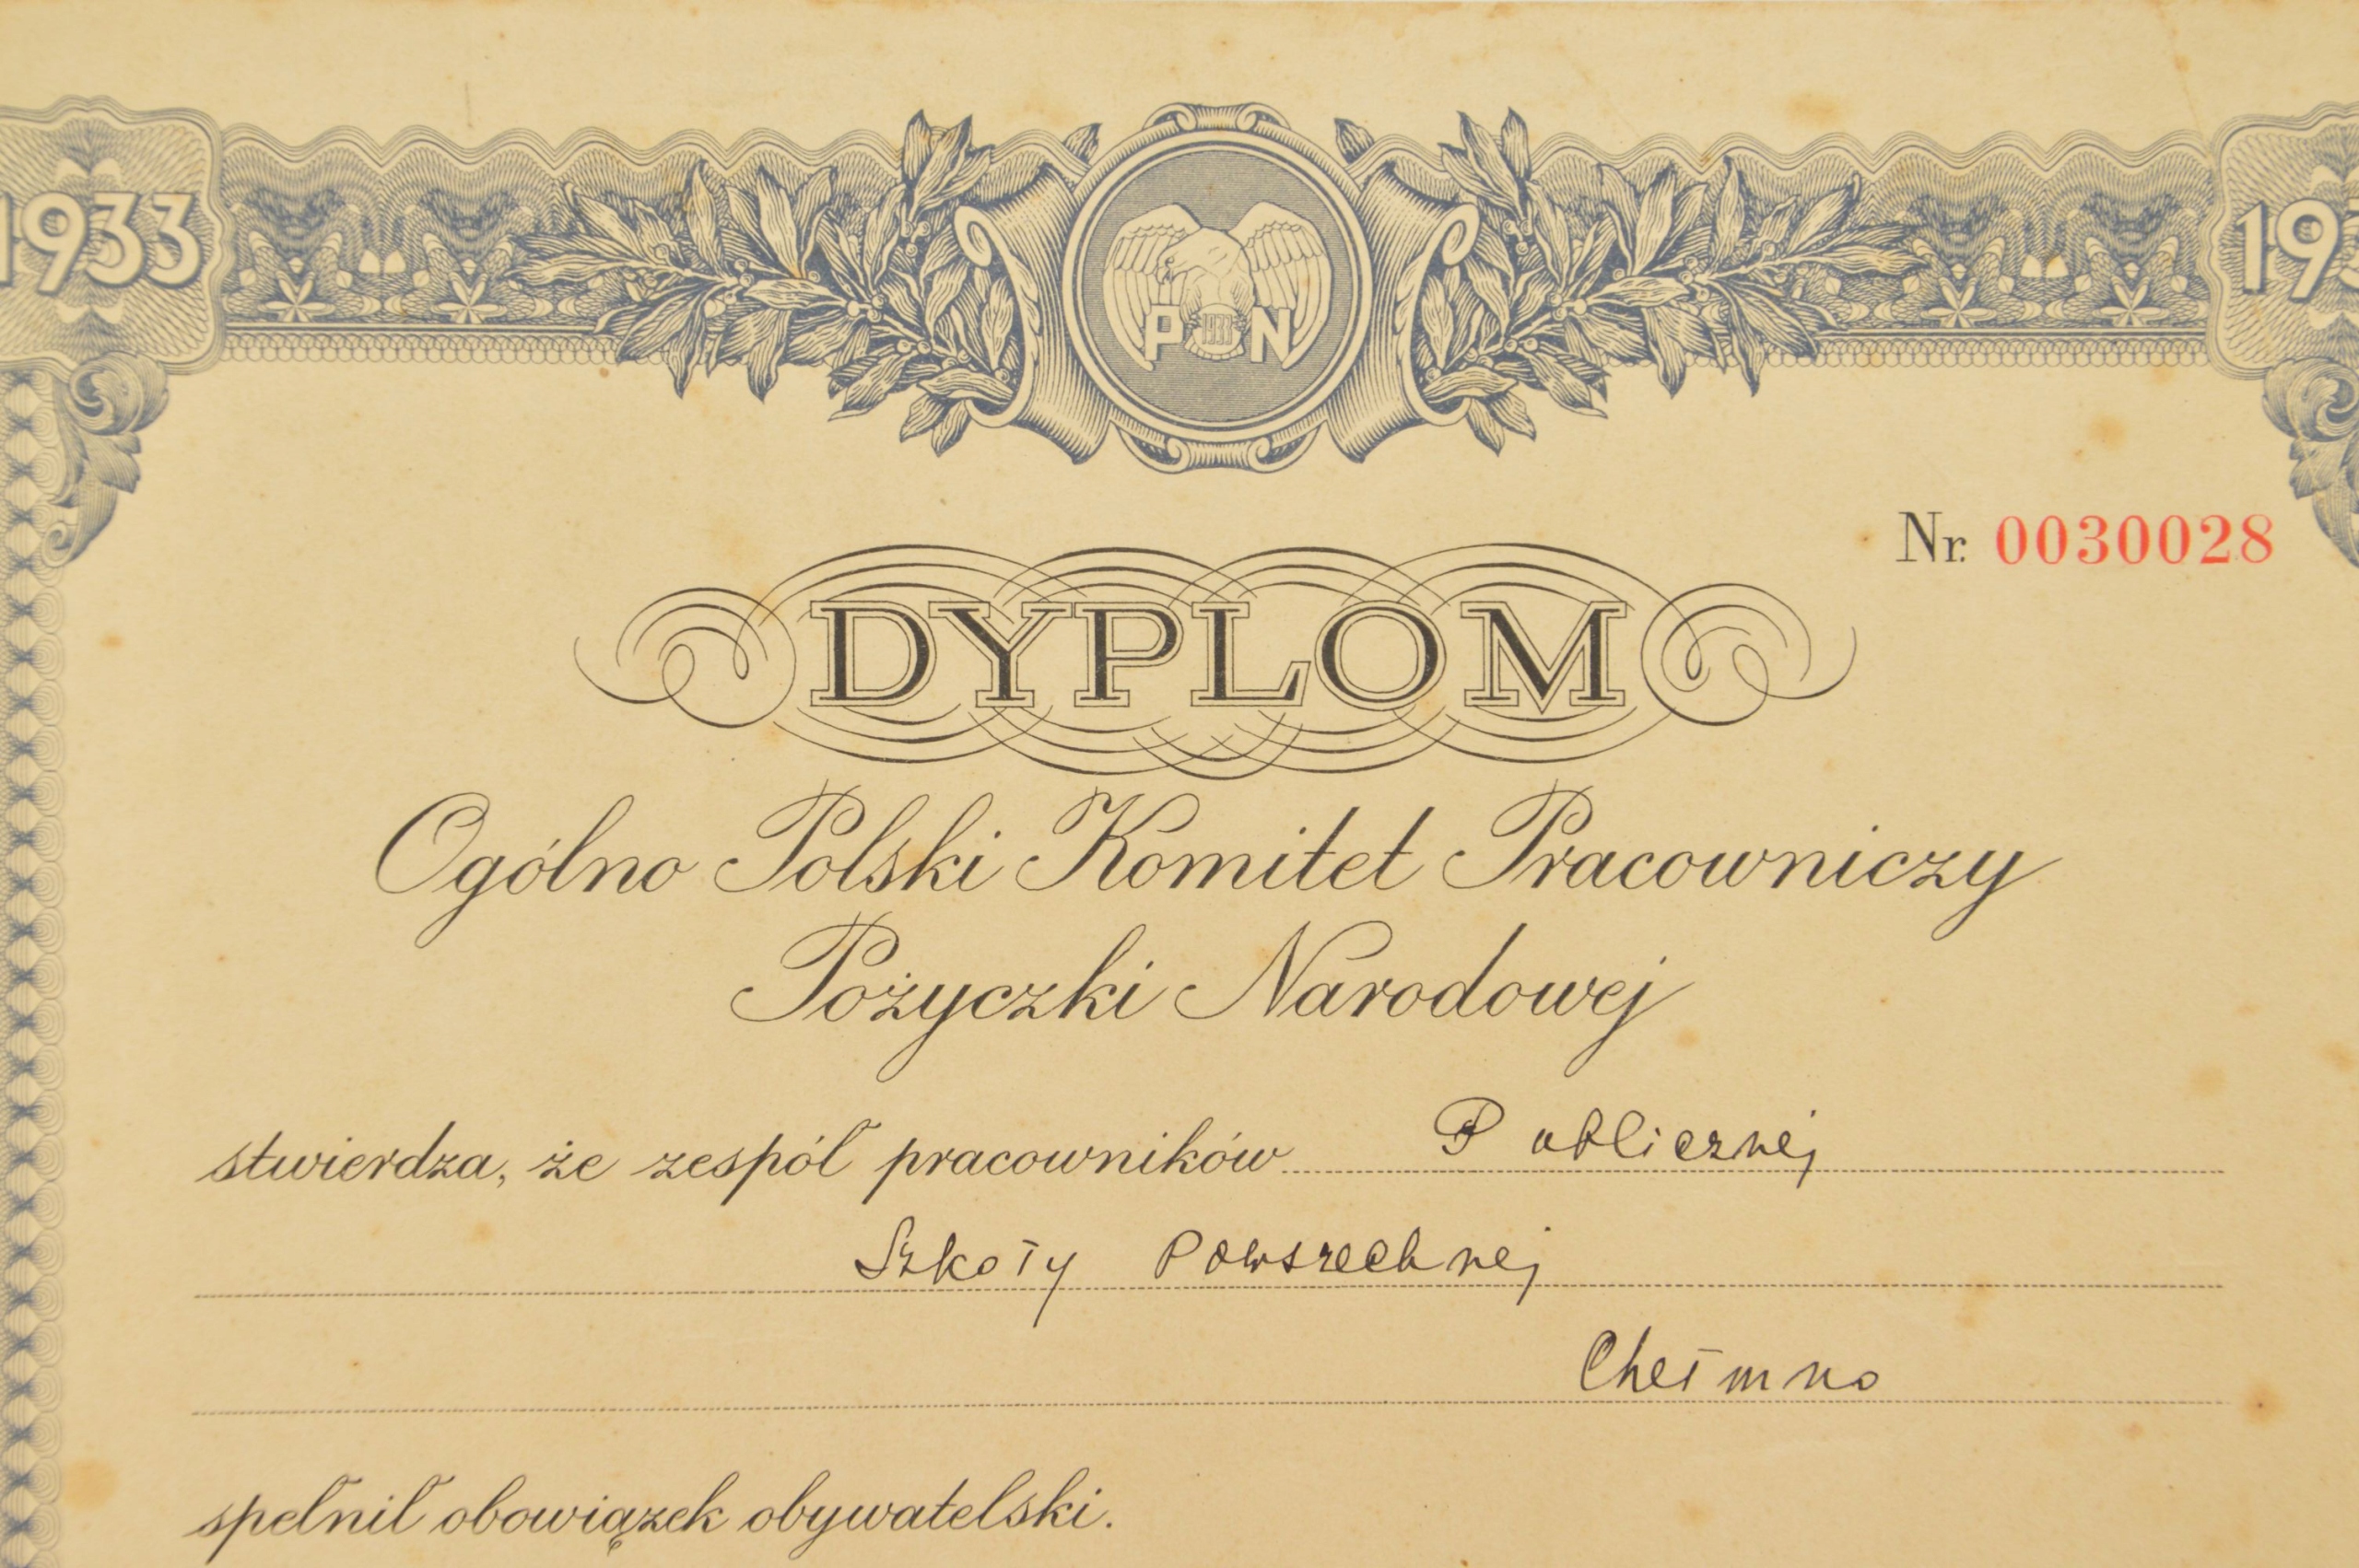 1933
P 1933 N
193
Nr. 0030028
DYPLOM
Ogólno Polski Komitet Pracowniczy
Pożyczki Narodowej
stwierdza, że zespół pracowników Publicznej
Szkoły Powszechnej
Chełmno
spełnił obowiązek obywatelski.